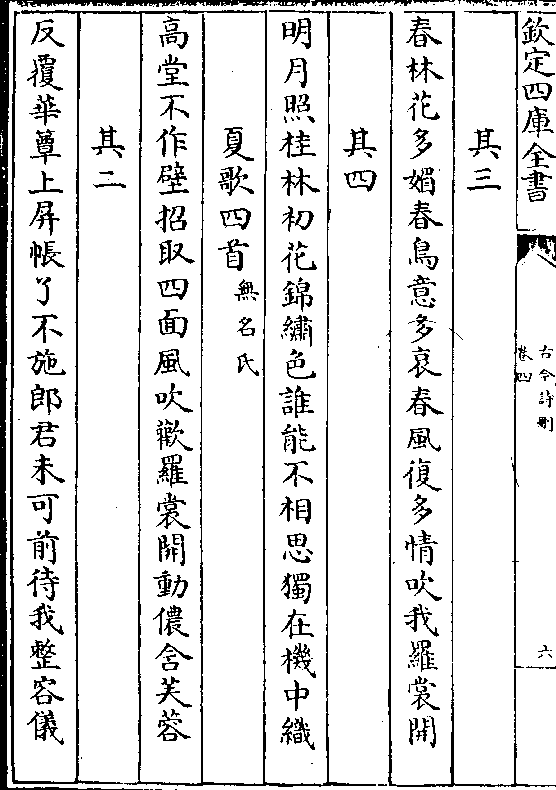 欽定四庫全書
古今詩刪
卷四
六
其三
春林花多媚春鳥意多哀春風復多情吹我羅裳開
其四
明月照桂林初花錦繡色誰能不相思獨在機中織
夏歌四首無名氏
高堂不作壁招取四面風吹歡羅裳開動儂含芙蓉
其二
反覆華簟上屏帳了不施郎君未可前待我整容儀